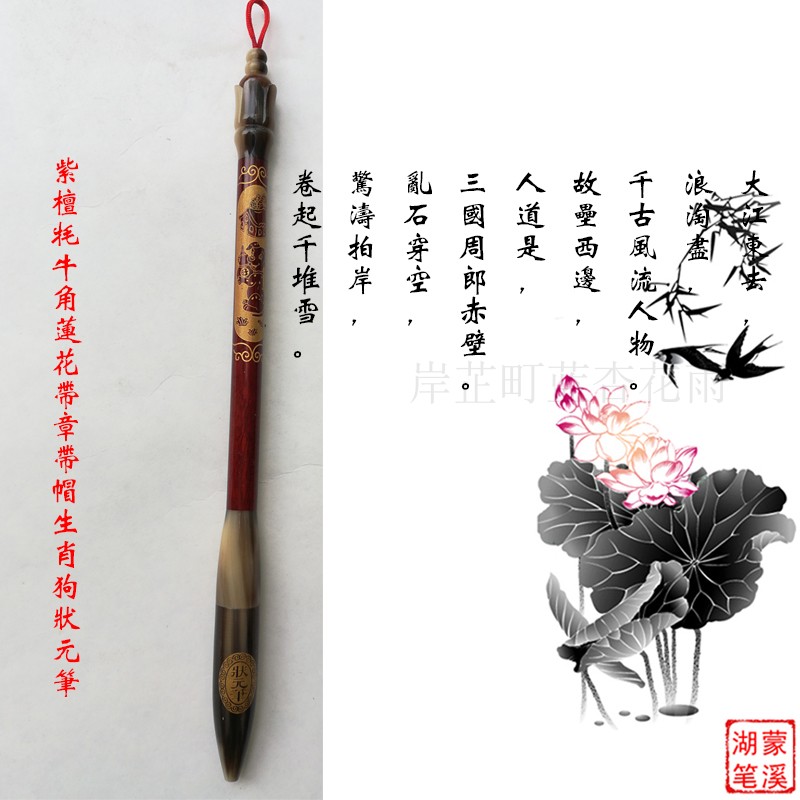 紫檀牦牛角蓮花帶章帶帽生肖狗狀元筆
大江東去，
浪淘盡，
千古風流人物。
故壘西邊，
人道是，
三國周郎赤壁。
亂石穿空，
驚濤拍岸，
卷起千堆雪。
岸芷町蓝杏花雨
狀元
蒙溪
湖笔